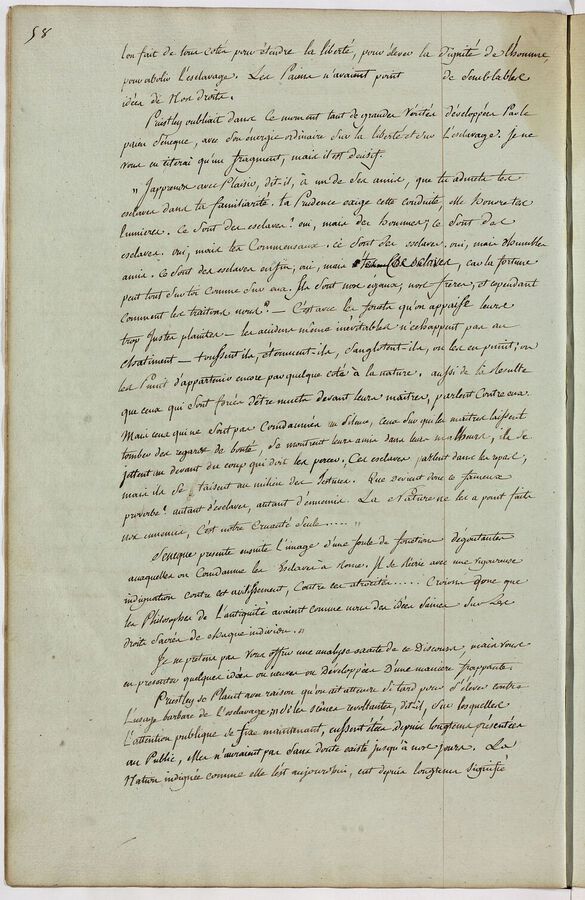 58
l'on fait de tous cotés pour étendre la liberté, pour élever la dignité de l'homme,
pour abolir l'esclavage. Les Paiens n'avaient point de semblables
idées de nos droits.
Priestley oubliait dans ce moment tant de grandes vérités développées par le
paien Séneque, avec son énergie ordinaire sur la liberté et sur l'esclavage. Je ne
vous en citerai qu'un fragment, mais il est décisif.
" J'apprens avec Plaisir, dit-il, à un de ses amis, que tu admets tes
esclaves dans ta familiarité. ta Prudence exige cette conduite, elle honore tes
lumieres. Ce sont des esclaves? oui, mais des hommes; ce sont des
esclaves. oui, mais tes Commensaux. ce sont des esclaves, oui, mais d'humbles
amis. Ce sont des esclaves enfin, oui, mais esclaves, car la fortune
peut tout sur toi comme sur eux. Ils sont nos égaux, nos frères, et cependant
comment les traitons nous? — C'est avec le fouet qu'on appaise leurs
trop justes plaintes — les accidens même inévitables n'échappent pas au
chatiment — toussent-ils, éternuent-ils, sanglotent-ils, on les en punit; on
les Punit d'appartenir encore par quelque coté à la nature. aussi de là Résulte
que ceux qui sont forcés d'être muets devant leurs maitres, parlent Contre eux.
Mais ceux qui ne sont pas Condamnés au silence, ceux sur qui les maitres laissent
tomber des regards de bonté, se montrent leurs amis dans leurs malheurs, ils se
jettent au devant du coup qui doit les percer, Ces esclaves parlent dans les repas,
mais ils se taisent au milieu des tortures. Que devient donc ce fameux
proverbe? autant d'esclaves, autant d'ennemis. La Nature ne les a point faits
nos ennemis, C'est notre Cruauté seule..... "
Séneque présente ensuite l'image d'une foule de fonctions dégoutantes
auxquelles on Condamne les Esclaves à Rome. Il se récrie avec une vigoureuse
indignation contre cet avilissement, Contre ces atrocités..... Croions donc que
les Philosophes de l'antiquité avaient comme nous des idées saines sur les
droits sacrés de chaque individu. "
Je ne prétens pas vous offrir une analyse exacte de ce Discours, mais vous
en présenter quelques idées ou neuves ou Développées D'une maniere frappante.
Priestley se Plaint avec raison qu'on ait attendu si tard pour s'élever contre
l'usage barbare de l'esclavage; " si les scènes révoltantes, dit-il, sur lesquelles
l'attention publique se fixe maintenant, eussent étées depuis longtems présentées
au Public, elles n'auraient pas sans doute existé jusqu'à nos jours. La
Nation indignée comme elle l'est aujourd'hui, eut depuis longtems signifié